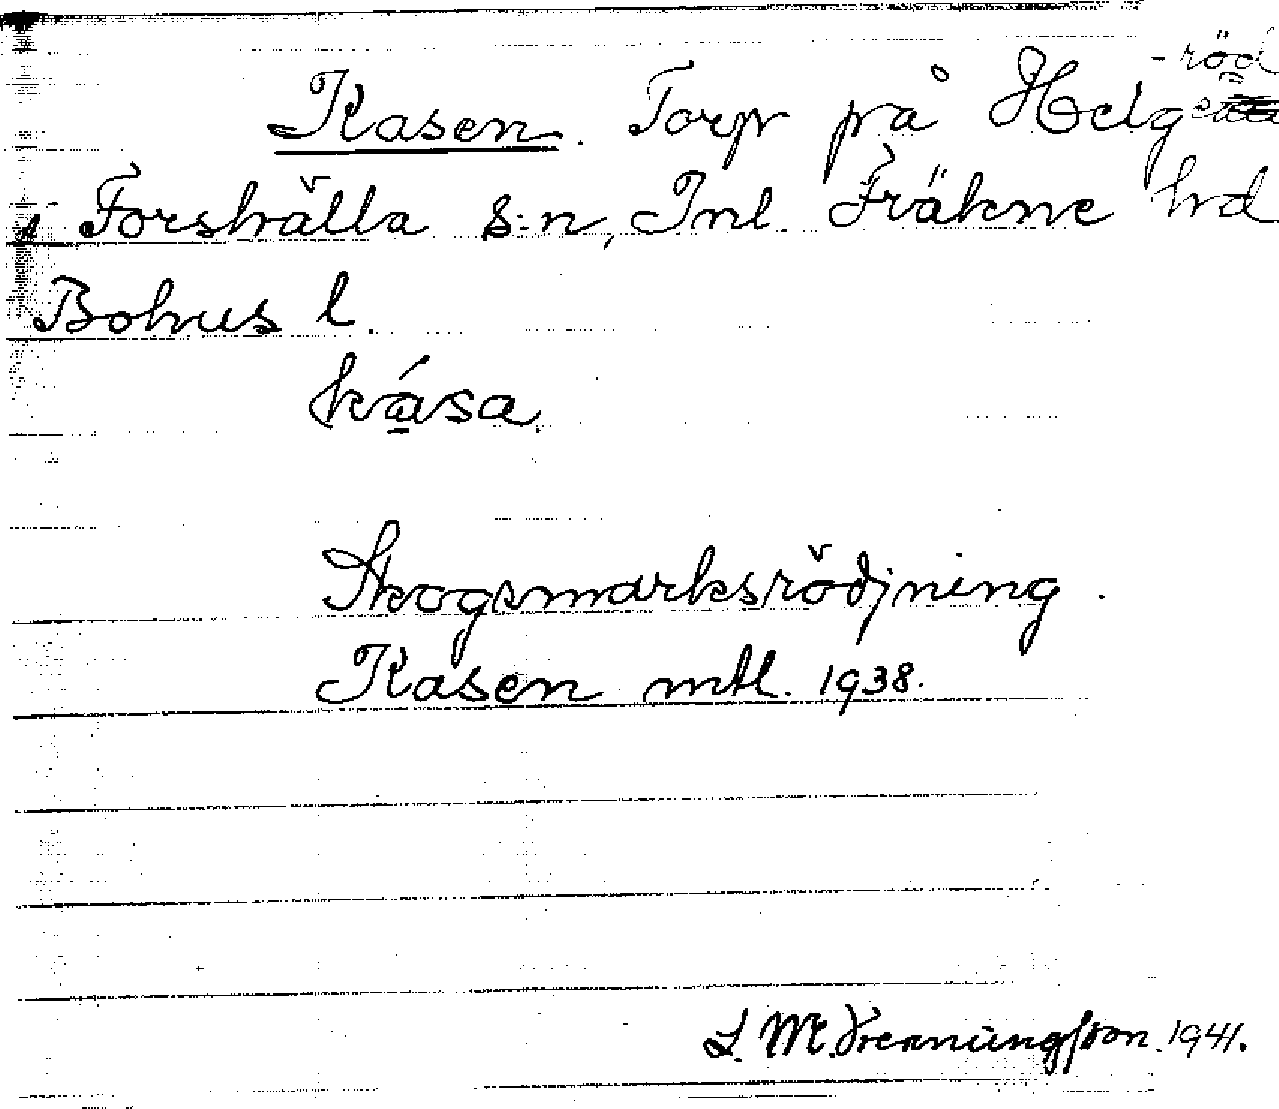 -röd
Kasen. Torp på Helge
i Forshälla s:n, Inl. Fräkne hd
Bohus l.
kása
Skogsmarksrödjning.
Kasen mtl. 1938.
L. M. 1941.